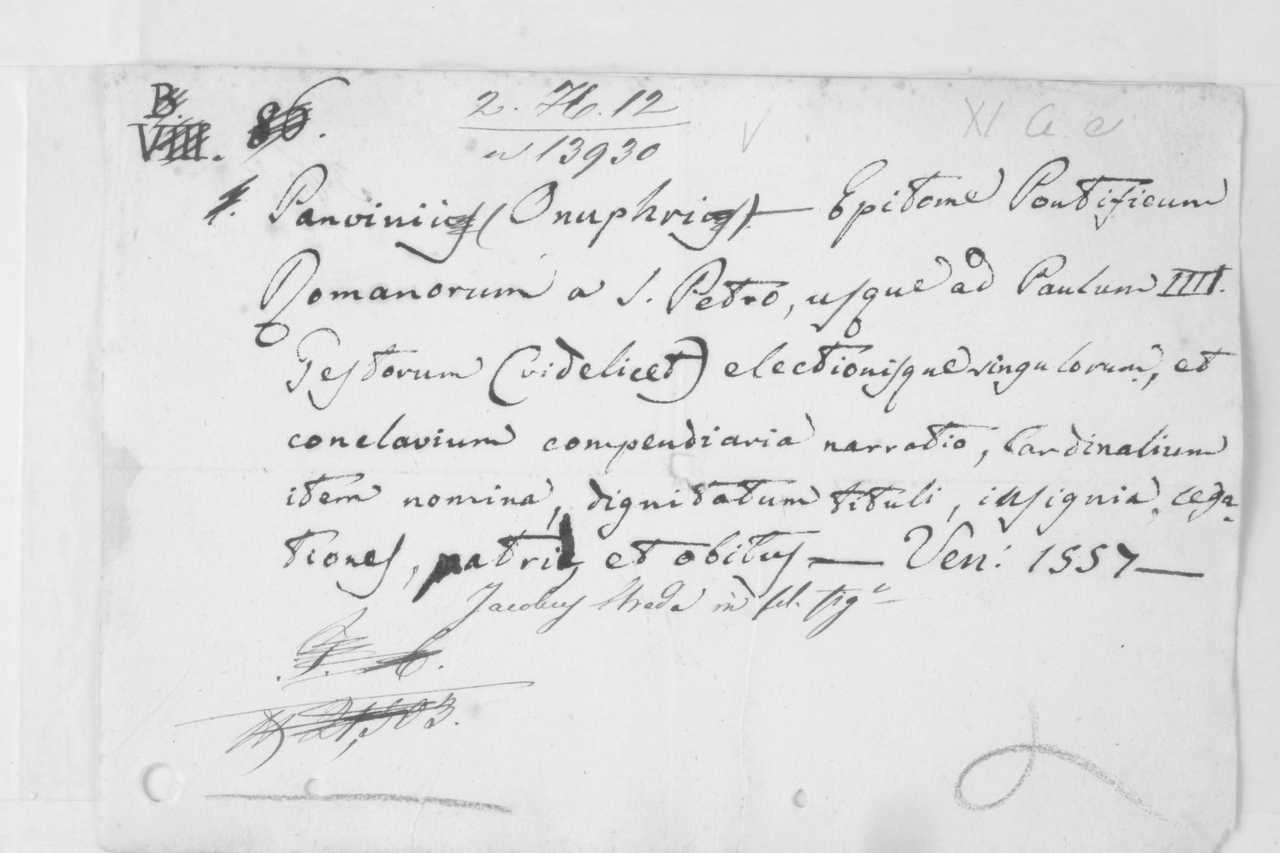 B.
VIII. 86.
2. H. 12
n 13930
XI a. a
Panvinii (Onuphrii) — Epitome Pontificum
Romanorum a S. Petro, usque ad Paulum IIII.
Gestorum (videlicet) electionisque singulorum, et
conclavium compendiaria narratio, Cardinalium
item nomina, dignitatum tituli, insignia, lega-
tiones, patria et obitus — Ven: 1557 —
Jacobus Strada in fol. fig
21,503.